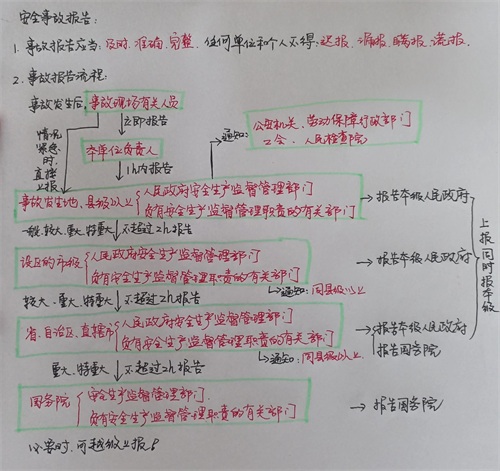 安全事故报告:
1. 事故报告应当:及时、准确、完整,任何单位和个人不得:迟报、漏报、瞒报、谎报.
2. 事故报告流程:
事故发生后,事故现场有关人员
立即报告
本单位负责人
1h内报告
情况紧急时,直接上报
通知:公安机关、劳动保障行政部门
工会、人民检察院
事故发生地、县级以上
人民政府安全生产监督管理部门
负有安全生产监督管理职责的有关部门
→报告本级人民政府
一般、较大、重大、特重大
不超过2h报告
设区的市级
人民政府安全生产监督管理部门
负有安全生产监督管理职责的有关部门
→报告本级人民政府
通知:同县级以上
较大、重大、特重大
不超过2h报告
省、自治区、直辖市
人民政府安全生产监督管理部门
负有安全生产监督管理职责的有关部门
→报告本级人民政府
报告国务院
通知:同县级以上.
上报同时报本级
重大、特重大
不超过2h报告
国务院
安全生产监督管理部门.
负有安全生产监督管理职责的有关部门
→报告国务院
必要时,可越级上报!